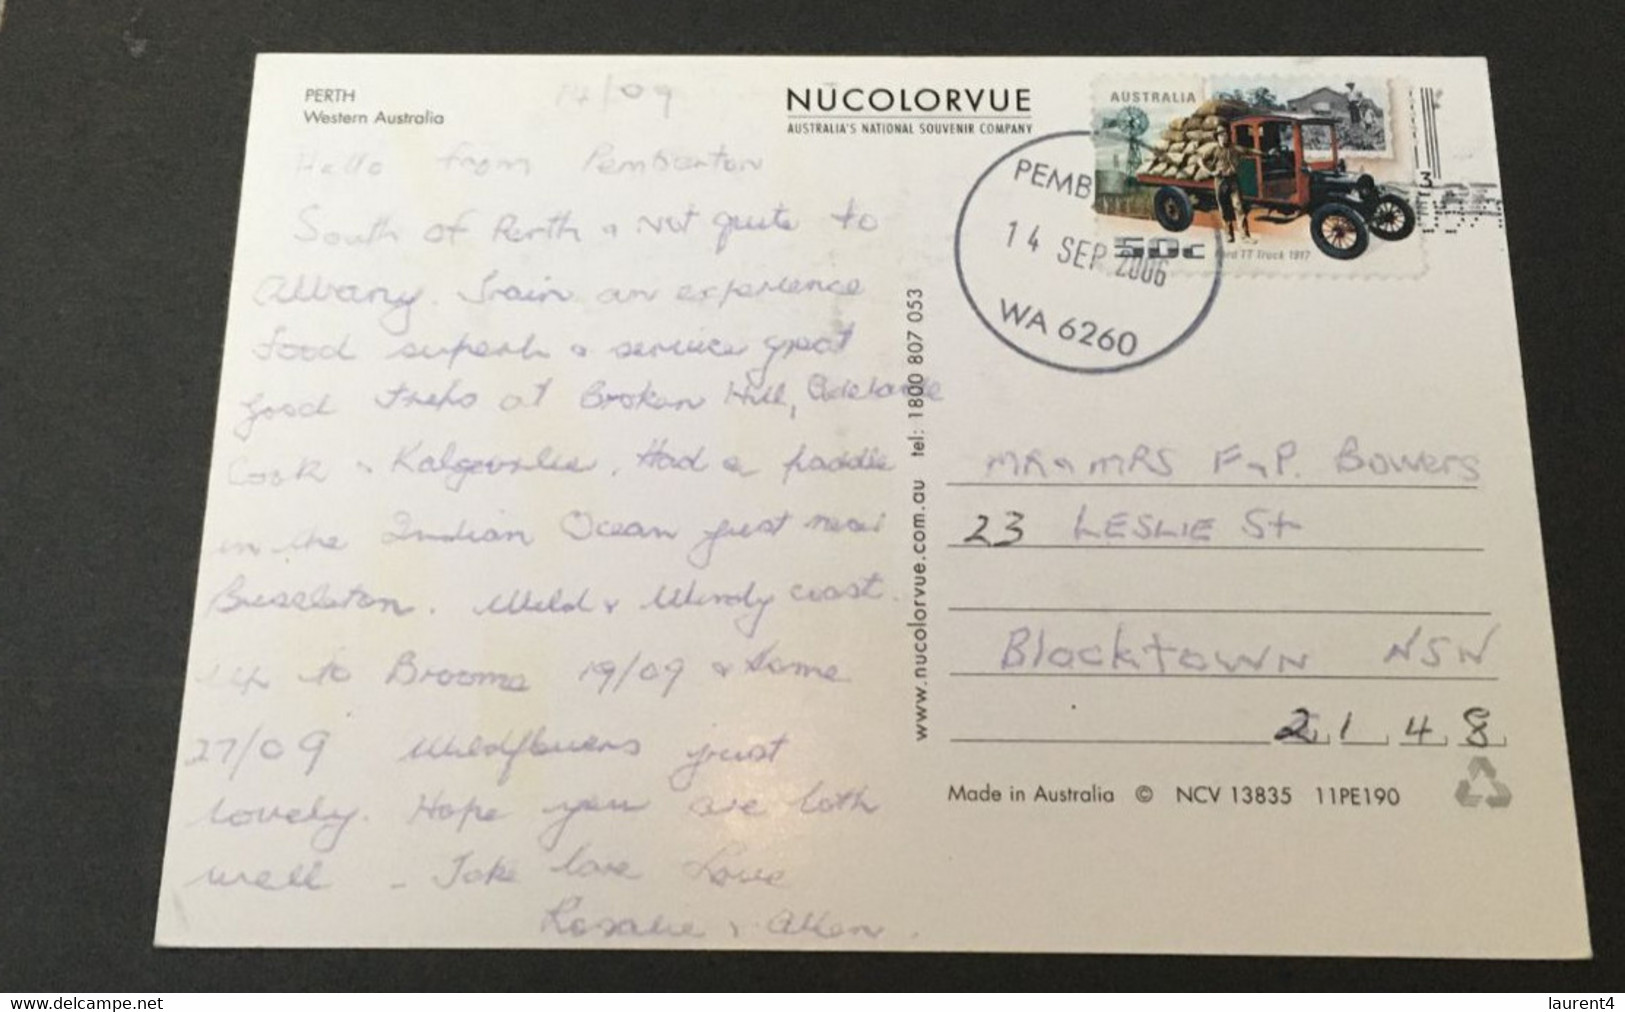 PERTH
Western Australia
14/09
NUCOLORVUE
AUSTRALIA'S NATIONAL SOUVENIR COMPANY
AUSTRALIA
50c
Ford TT Truck 1917
PEMB
14 SEP 2006
WA 6260
Hello from Pemberton
South of Perth & not quite to
Albany. Train an experience
food superb & service great
good treks at Broken Hill, Adelaide
Cook & Kalgoorlie. Had a paddle
in the Indian Ocean just near
Busselton. Wild & Windy coast.
up to Broome 19/09 & home
27/09 Wildflowers just
lovely. Hope you are both
well - Take care Love
Rosalie & Allen.
www.nucolorvue.com.au tel: 1800 807 053
MR & MRS F & P. Bowers
23 LESLIE St
Blacktown NSW
2148
Made in Australia © NCV 13835 11PE190
www.delcampe.net
laurent4